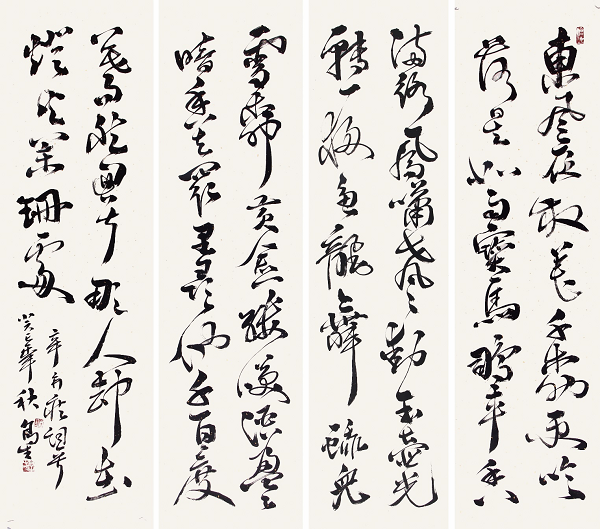 東風夜放花千樹更吹
落星如雨寶馬雕車香
滿路鳳嘯聲動玉壺光
轉一夜魚龍舞蛾兒
雪柳黃金縷笑語盈盈
暗香去眾里尋他千百度
驀然回首那人卻在
燈火闌珊處
辛棄疾詞
秋